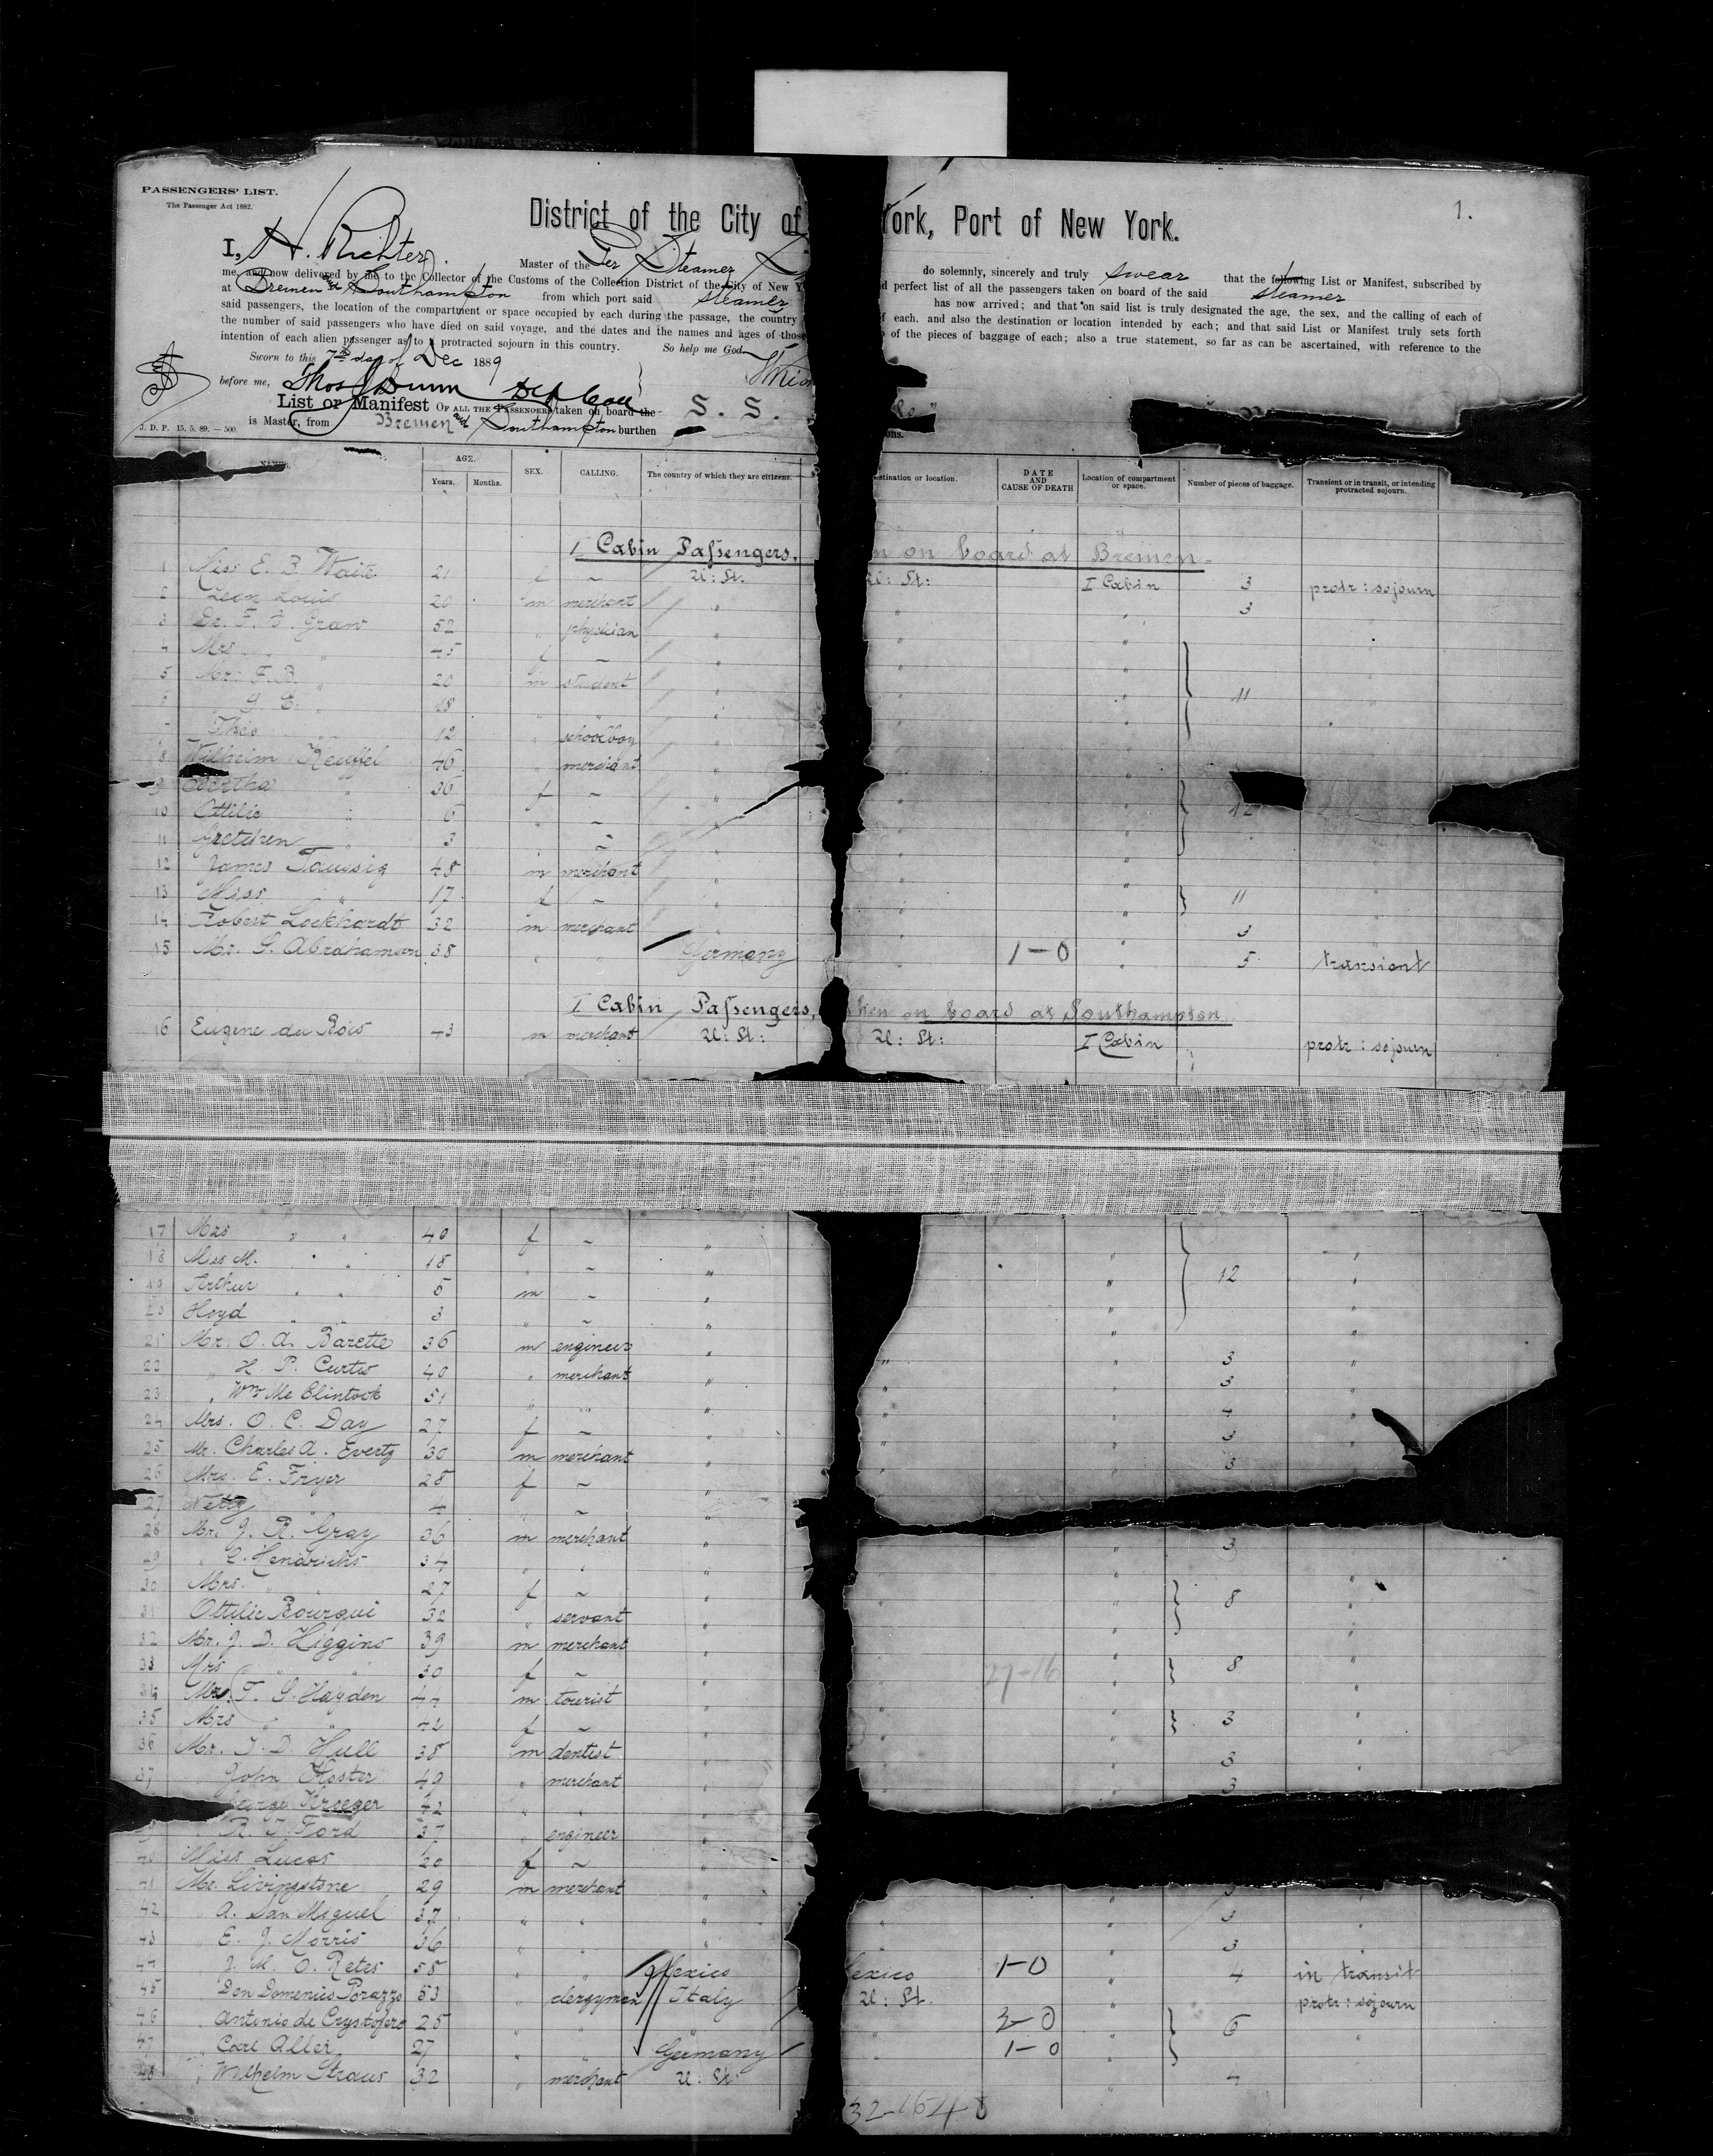 PASSENGERS' LIST.
The Passenger Act 1882.
1.
District of the City of York, Port of New York.
I, H. Richter, Master of the Per Steamer do solemnly, sincerely and truly swear that the following List or Manifest, subscribed by
me, and now delivered by me to the Collector of the Customs of the Collection District of the City of New Y d perfect list of all the passengers taken on board of the said steamer
at Bremen and Southampton from which port said steamer has now arrived; and that on said list is truly designated the age, the sex, and the calling of each of
said passengers, the location of the compartment or space occupied by each during the passage, the country of each. and also the destination or location intended by each; and that said List or Manifest truly sets forth
the number of said passengers who have died on said voyage, and the dates and the names and ages of those of the pieces of baggage of each; also a true statement, so far as can be ascertained, with reference to the
intention of each alien passenger as to a protracted sojourn in this country. So help me God
Sworn to this 7th day of Dec 1889
before me, Thos J Dunn Dep Coll
List or Manifest OF ALL THE PASSENGERS taken on board the S. S.
is Master, from Bremen and Southampton burthen ons.
J. D. P. 15. 5. 89. — 500.
AGE. Years. Months. SEX. CALLING. The country of which they are citizens. stination or location. DATE AND CAUSE OF DEATH Location of compartment or space. Number of pieces of baggage. Transient or in transit, or intending protracted sojourn.
I Cabin Passengers, n on board at Bremen.
1 Miss E. B. Waite 21 f ~ U: St. U: St: I Cabin 3 protr: sojourn
2 Leon Louis 20 m merchant " " " 3
3 Dr. F. B. Graw 52 " physician " " "
4 Mrs " 45 f ~ " " "
5 Mr. F. B. " 20 m student " " " 11
6 " G. E. " 18 " " " " "
7 Theo " 12 " schoolboy " " "
8 Wilhelm Keuffel 46 " merchant " " "
9 Bertha " 36 f ~ " " " 12
10 Ottilie " 6 " ~ " " "
11 Gretchen " 3 " ~ " " "
12 James Taussig 48 m merchant " " "
13 Miss " 17 f ~ " " " 11
14 Robert Lockhardt 32 m merchant " " " 3
15 Mr. S. Abrahamson 38 " " Germany " 1-0 " 5 transient
I Cabin Passengers, ken on board at Southampton
16 Eugene du Bois 43 m merchant U: St: U: St: I Cabin protr: sojourn
17 Mrs " " 40 f ~ "
18 Miss M. " " 18 " ~ " " 12 "
19 Arthur " " 5 m ~ " " "
20 Hoyd " " 3 " ~ " " "
21 Mr. O. A. Barette 36 m engineer " " " 3 "
22 " H. P. Curtis 40 " merchant " " " 3 "
23 " Wm Mc Clintock 51 " " " " " 4 "
24 Mrs. O. C. Day 27 f ~ " " " 3 "
25 Mr. Charles A. Evertz 30 m merchant " " " 3
26 Mrs. E. Fryer 28 f ~ "
27 Netty " 4 " ~ "
28 Mr. J. R. Gray 36 m merchant " " 3 "
29 " C. Hendricks 34 " " " " "
30 Mrs. " " 27 f ~ " " " 8 "
31 Ottilie Bourqui 32 " servant " " " "
32 Mr. J. D. Higgins 39 m merchant " " " "
33 Mrs " " 30 f ~ " 27-16 " 8 "
34 Mr. T. G. Hayden 44 m tourist " " " "
35 Mrs " " 42 f ~ " " " 3 "
36 Mr. T. D. Hull 38 m dentist " " " 3 "
37 " John Koster 49 " merchant " " " 3
George Kroeger 42 " " "
" R. T. Ford 37 " engineer "
40 Miss Lucas 20 f ~ "
41 Mr. Livingstone 29 m merchant " " 3 "
42 " A. San Miguel 37 " " " " " 3 "
43 " E. J. Morris 36 " " " " 3 "
44 " J. M. O. Retes 58 " " Mexico exico 1-0 " 4 in transit
45 " Don Domenico Porazzo 53 " clergyman Italy U: St. " protr: sojourn
46 " Antonio de Crystofero 25 " " " " 2-0 " 6 "
47 " Carl Aller 27 " " Germany " 1-0 "
48 " Wilhelm Straus 32 " merchant U: St. " 4
32-1648